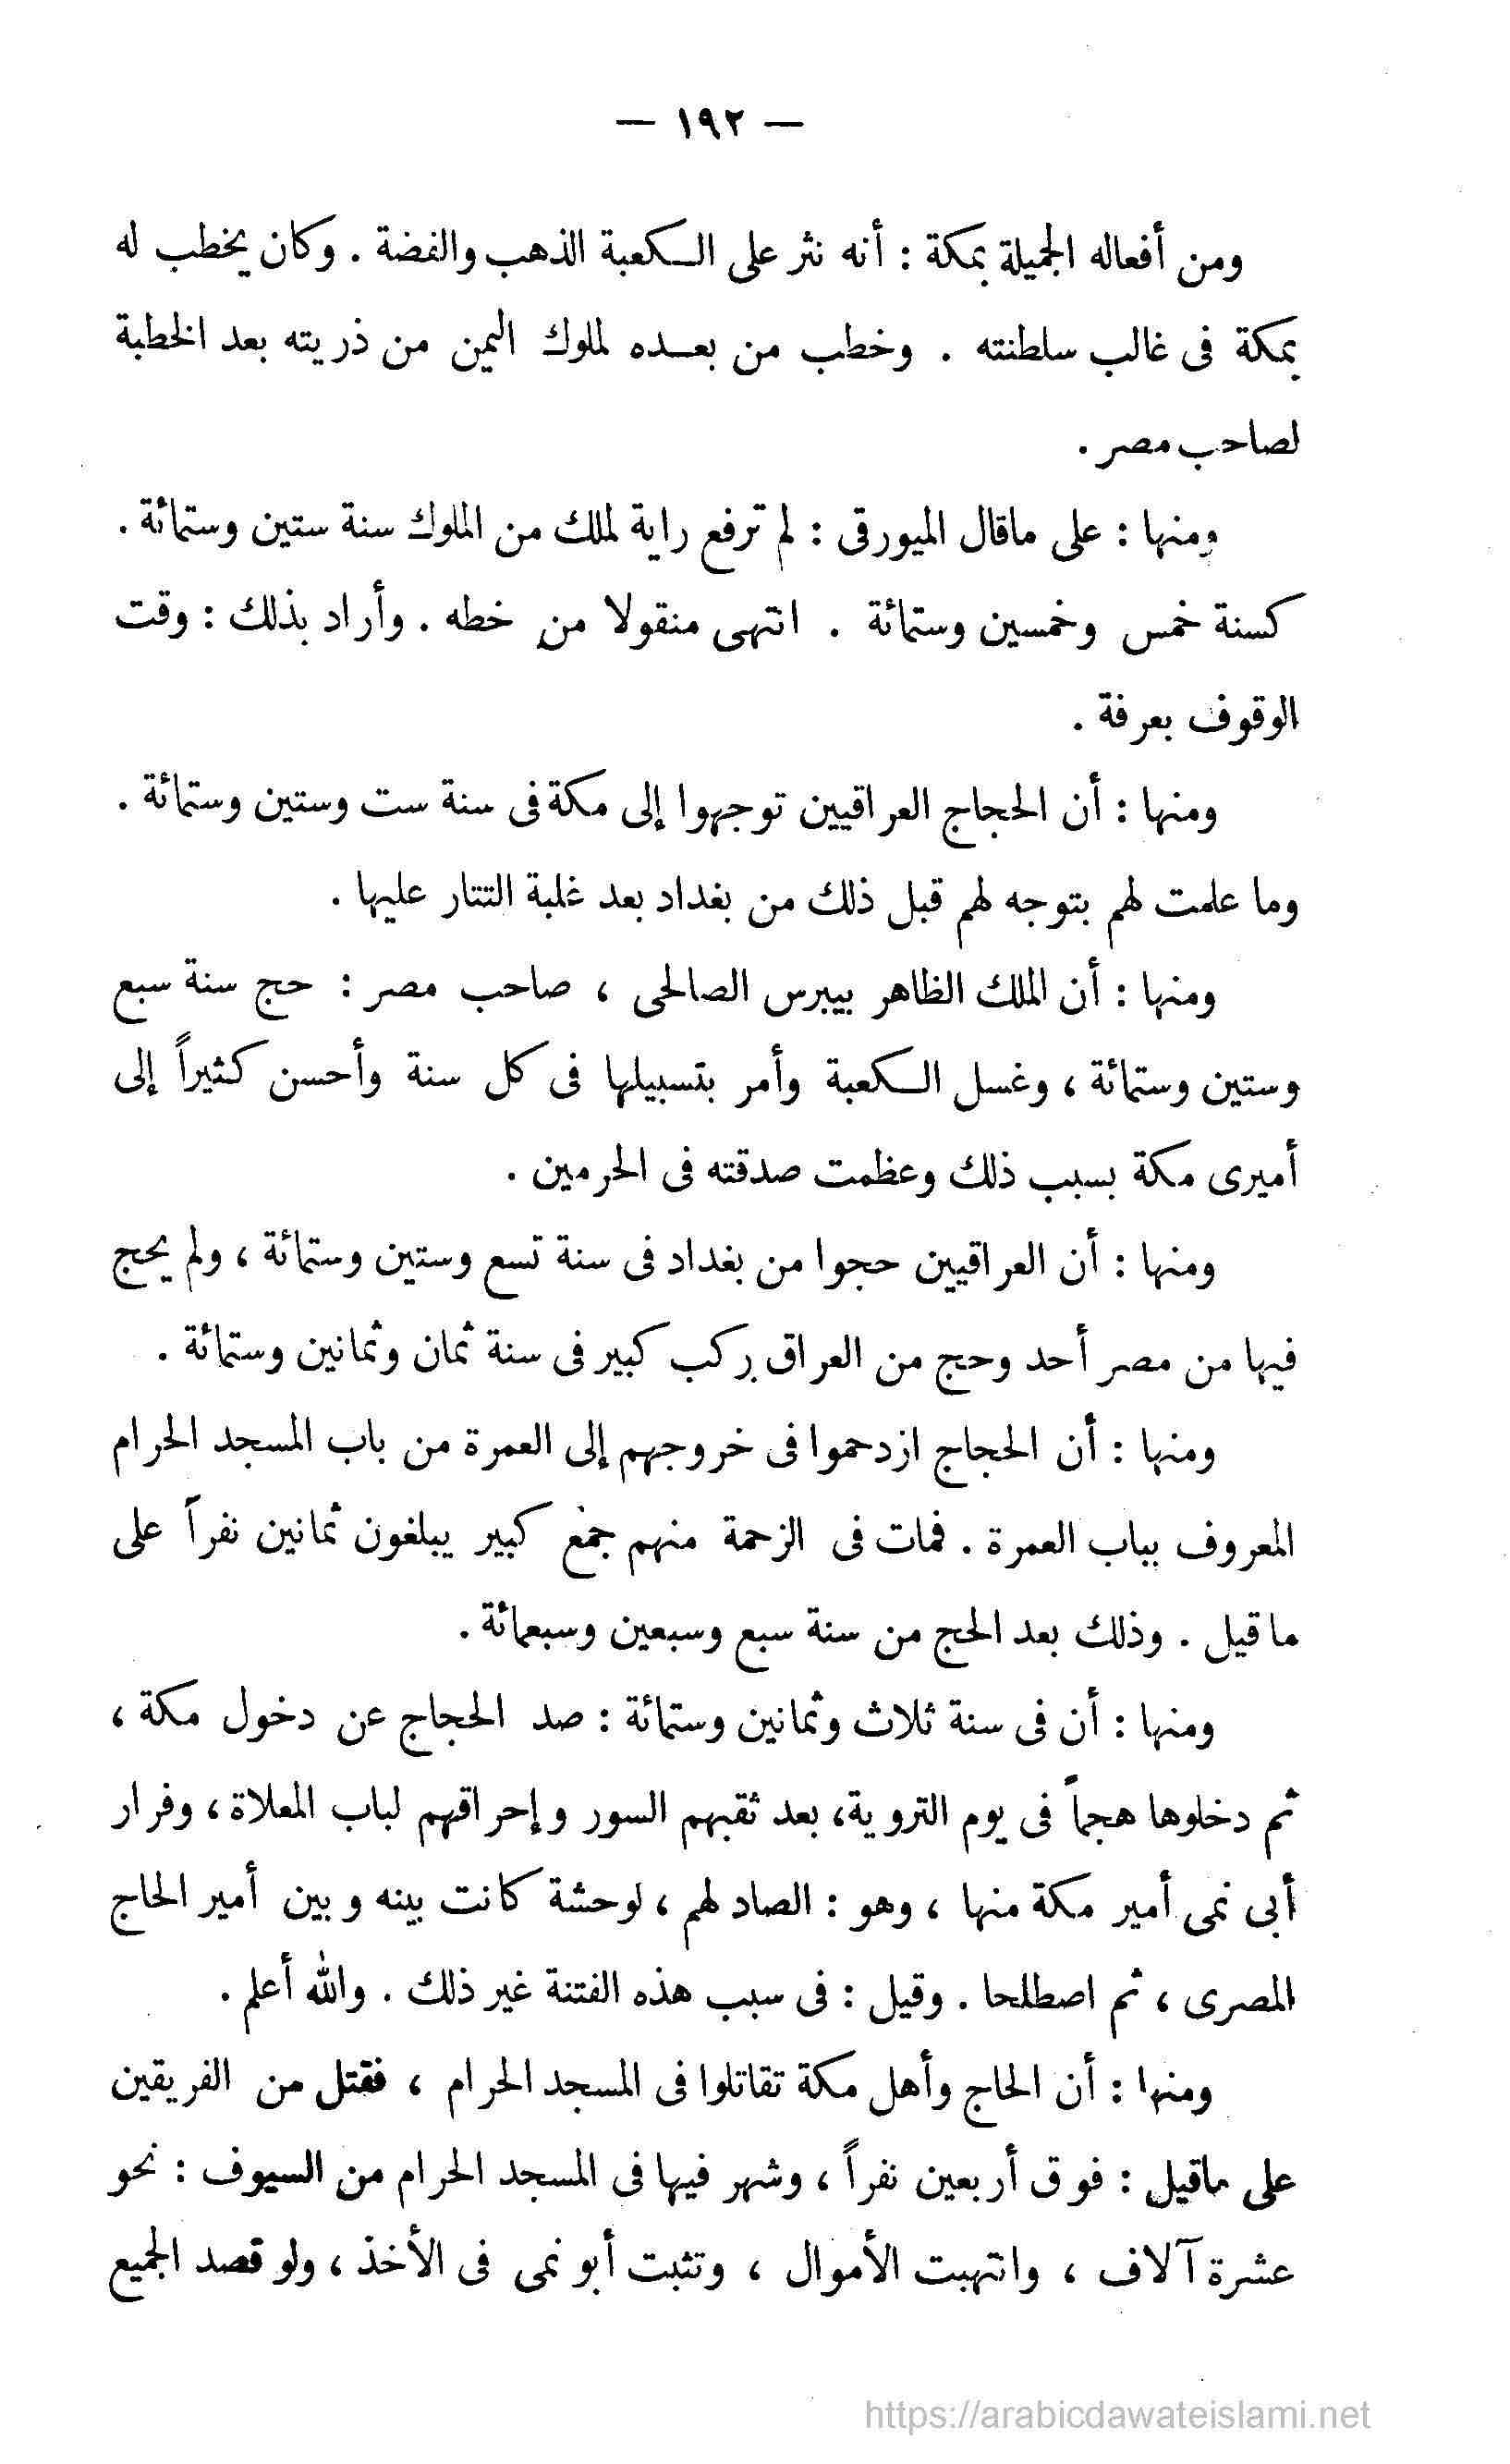 — ١٩٢ —
ومن أفعاله الجميلة بمكة : أنه نثر على الكعبة الذهب والفضة . وكان يخطب له
بمكة فى غالب سلطنته . وخطب من بعده لملوك اليمن من ذريته بعد الخطبة
لصاحب مصر .
ومنها : على ماقال الميورقى : لم ترفع راية لملك من الملوك سنة ستين وستمائة .
كسنة خمس وخمسين وستمائة . انتهى منقولا من خطه . وأراد بذلك : وقت
الوقوف بعرفة .
ومنها : أن الحجاج العراقيين توجهوا إلى مكة فى سنة ست وستين وستمائة .
وما علمت لهم بتوجه لهم قبل ذلك من بغداد بعد غلبة التتار عليها .
ومنها : أن الملك الظاهر بيبرس الصالحى ، صاحب مصر : حج سنة سبع
وستين وستمائة ، وغسل الكعبة وأمر بتسبيلها فى كل سنة وأحسن كثيراً إلى
أميرى مكة بسبب ذلك وعظمت صدقته فى الحرمين .
ومنها : أن العراقيين حجوا من بغداد فى سنة تسع وستين وستمائة ، ولم يحج
فيها من مصر أحد وحج من العراق ركب كبير فى سنة ثمان وثمانين وستمائة .
ومنها : أن الحجاج ازدحموا فى خروجهم إلى العمرة من باب المسجد الحرام
المعروف بباب العمرة . فمات فى الزحمة منهم جمع كبير يبلغون ثمانين نفراً على
ما قيل . وذلك بعد الحج من سنة سبع وسبعين وسبعمائة .
ومنها : أن فى سنة ثلاث وثمانين وستمائة : صد الحجاج عن دخول مكة ،
ثم دخلوها هجماً فى يوم التروية، بعد ثقبهم السور وإحراقهم لباب المعلاة ، وفرار
أبى نمى أمير مكة منها ، وهو : الصاد لهم ، لوحشة كانت بينه وبين أمير الحاج
المصرى ، ثم اصطلحا . وقيل : فى سبب هذه الفتنة غير ذلك . والله أعلم .
ومنها : أن الحاج وأهل مكة تقاتلوا فى المسجد الحرام ، فقتل من الفريقين
على ماقيل : فوق أربعين نفراً ، وشهر فيها فى المسجد الحرام من السيوف : نحو
عشرة آلاف ، وانتهبت الأموال ، وتثبت أبو نمى فى الأخذ ، ولو قصد الجميع
https://arabicdawateislami.net